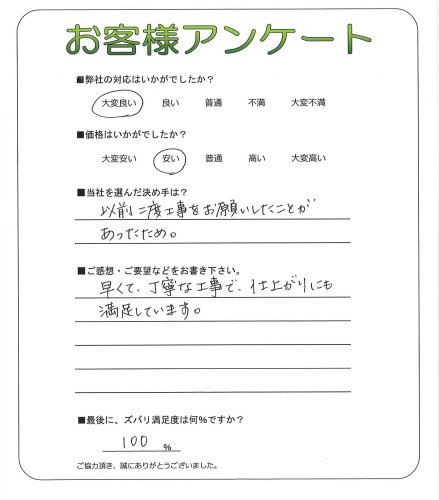 お客様アンケート
■弊社の対応はいかがでしたか？
大変良い 良い 普通 不満 大変不満
■価格はいかがでしたか？
大変安い 安い 普通 高い 大変高い
■当社を選んだ決め手は？
以前二度工事をお願いしたことが
あったため。
■ご感想・ご要望などをお書き下さい。
早くて、丁寧な工事で、仕上がりにも
満足しています。
■最後に、ズバリ満足度は何%ですか？
100 %
ご協力頂き、誠にありがとうございました。